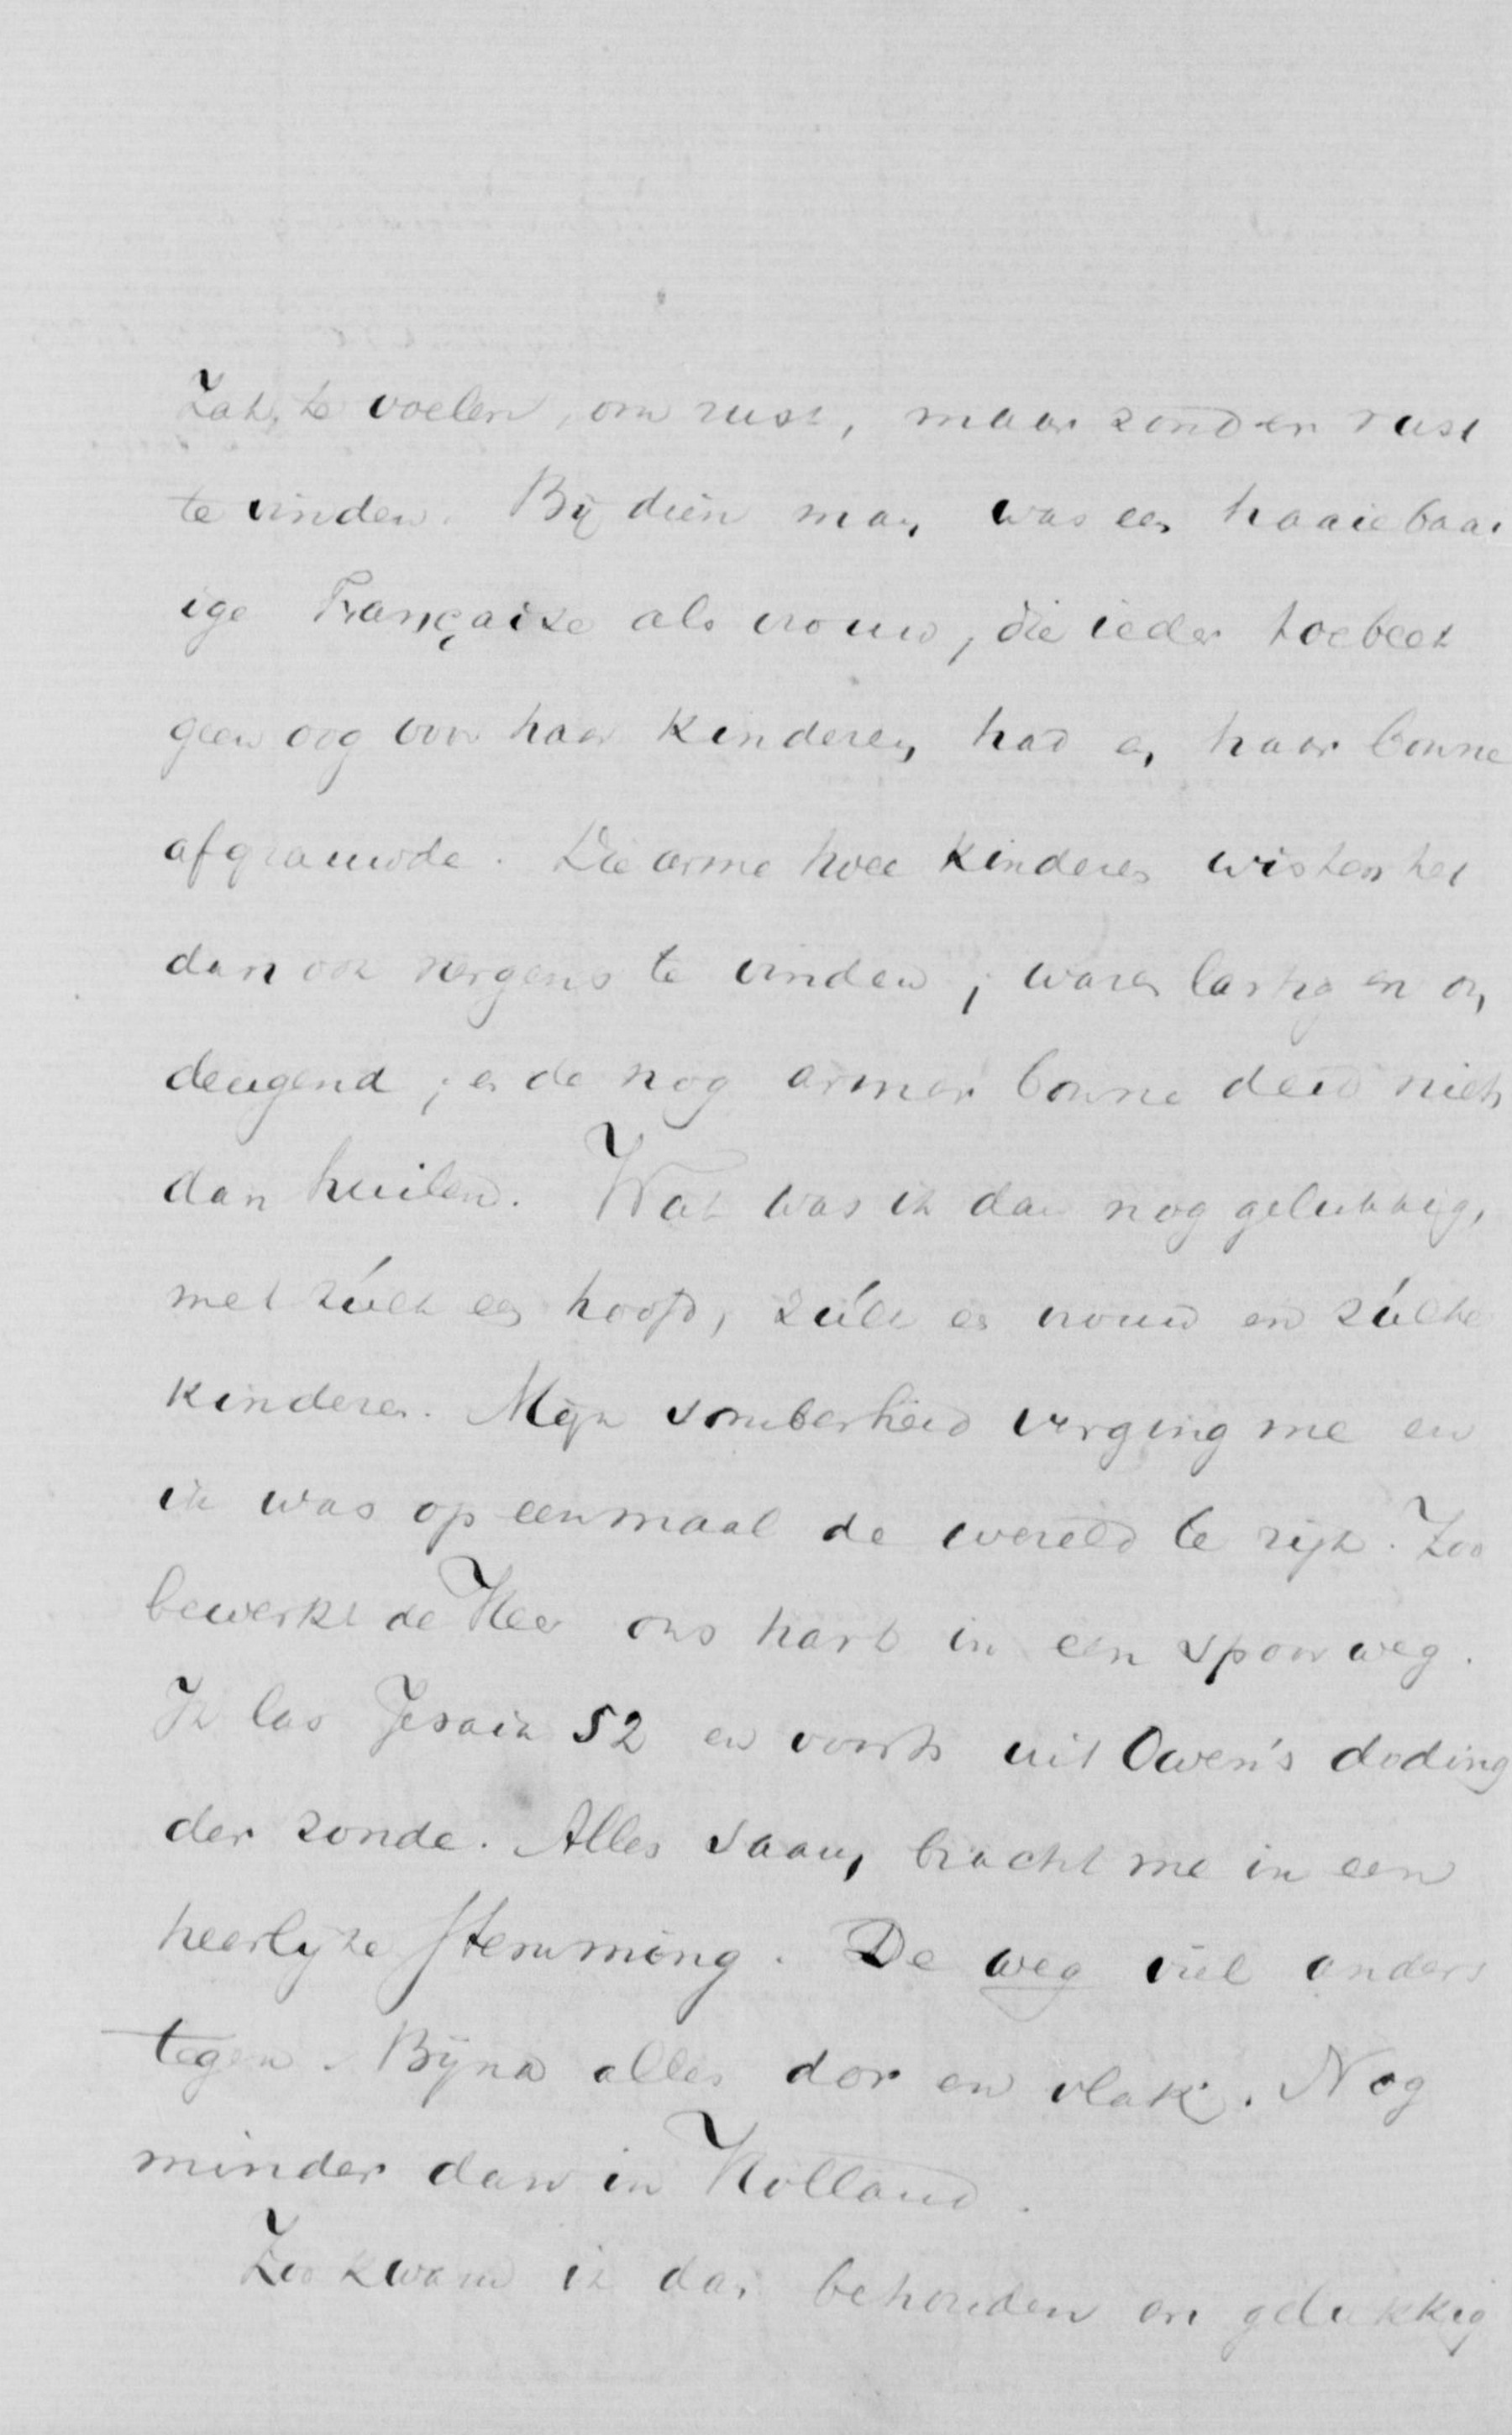 Zat te voelen, om rust, maar zonder rust
te vinden. Bij dien man was een haaiebaai
ige Française als vrouw, die ieder toebeet
geen oog voor haar kinderen had en haar bonne
afgrauwde. Die arme twee kinderen wisten het
dan ook nergens te vinden; waren lastig en on
deugend; en de nog armer bonne deed niets
dan huilen. Wat was ik dan nog gelukkig,
met zúlk een hoofd, zúlk een vrouw en zúlke
kinderen. Mijn somberheid verging me en
ik was op eenmaal de wereld te rijk. Zoo
bewerkt de Heer ons hart in een spoorweg.
Ik las Jesaia 52 en voorts uit Owen's doding
der zonde. Alles saam bracht me in een
heerlijke stemming. De weg viel anders
tegen. Bijna alles dor en vlak. Nog
minder dan in Holland.
Zoo kwam ik dan behouden en gelukkig